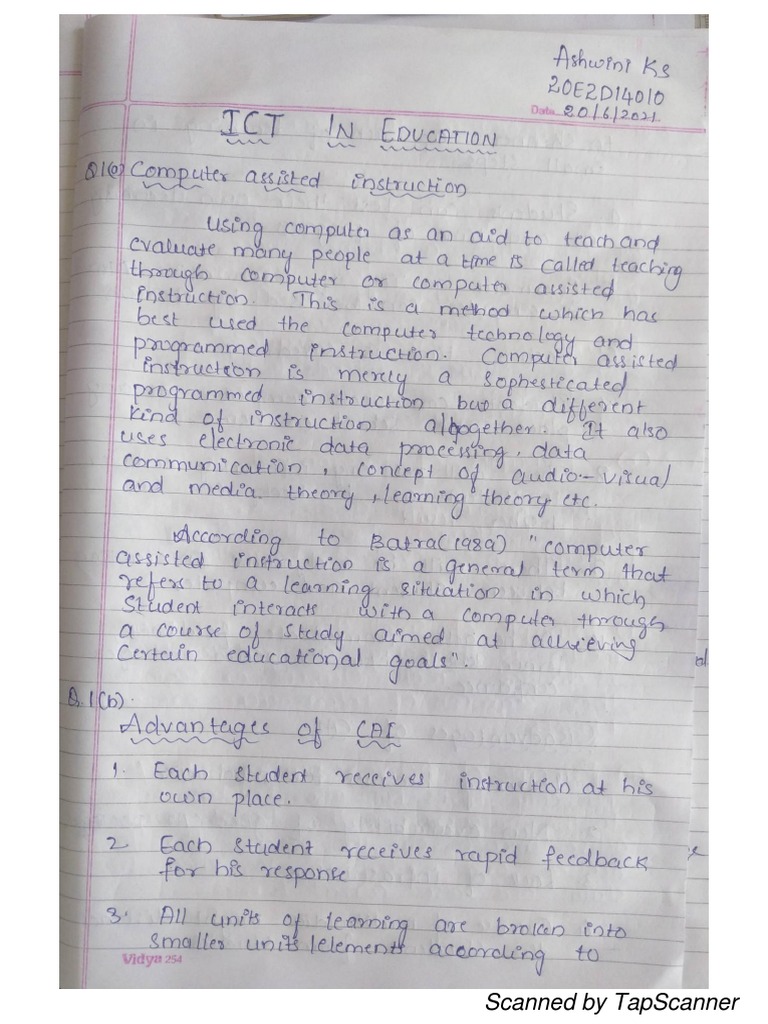 Ashwini KS
20E2D14010
Date 20/6/2021
ICT IN EDUCATION
Q1(a) Computer assisted instruction
Using computer as an aid to teach and
evaluate many people at a time is called teaching
through computer or computer assisted
instruction. This is a method which has
best used the computer technology and
programmed instruction. Computer assisted
instruction is merely a sophesticated
programmed instruction but a different
kind of instruction altogether. It also
uses electronic data processing, data
communication, concept of audio-visual
and media theory, learning theory etc.
According to Batra (1989) "computer
assisted instruction is a general term that
refers to a learning situation in which
Student interacts with a computer through
a course of study aimed at achieving
Certain educational goals".
Q.1(b)
Advantages of CAI
1. Each student receives instruction at his
own place.
2. Each student receives rapid feedback
for his response
3. All units of learning are broken into
smaller units/elements according to
Vidya 254
Scanned by TapScanner